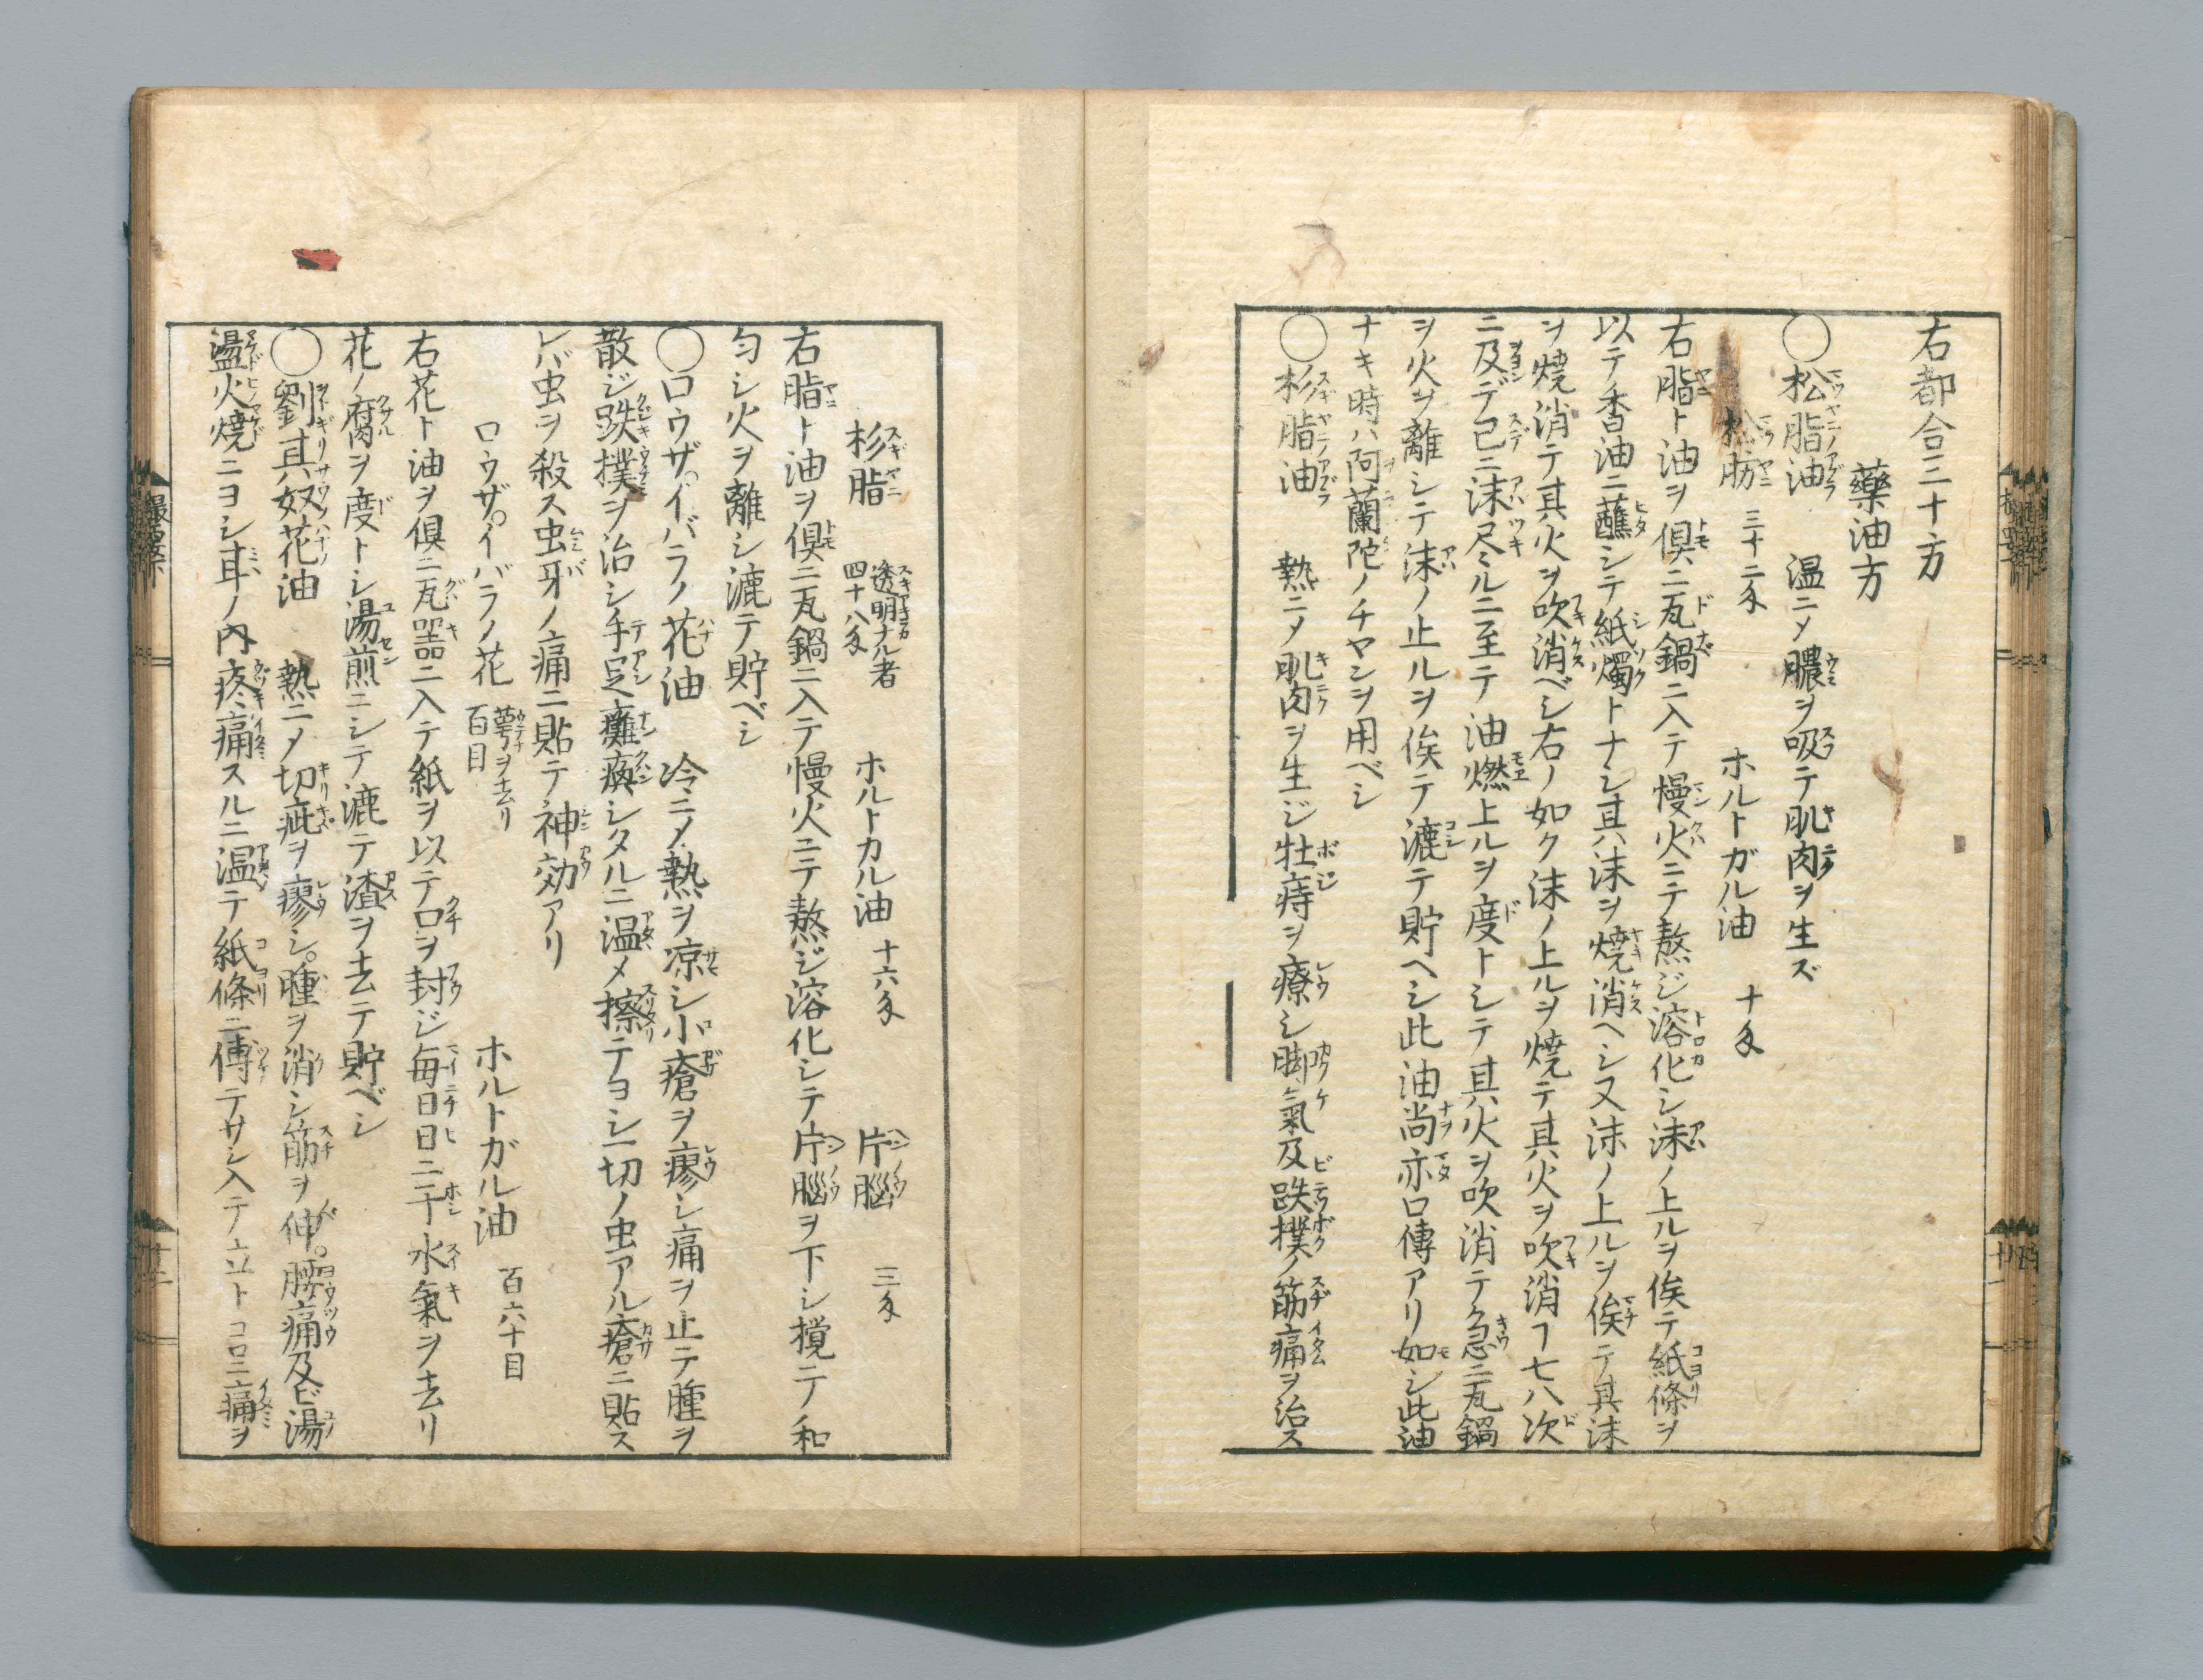 右都合三十方
藥油方
◯松脂油 温ニメ膿ヲ吸テ肌肉ヲ生ズ
松肪 三十二匁 ホルトガル油 十匁
右脂ト油ヲ倶ニ瓦鍋ニ入テ慢火ニテ熬ジ溶化シ沫ノ上ルヲ俟テ紙條ヲ
以テ香油ニ蘸シテ紙燭トナシ其沫ヲ焼消ヘシ又沫ノ上ルヲ俟テ其沫
ヲ焼消テ其火ヲ吹消ベシ右ノ如ク沫ノ上ルヲ焼テ其火ヲ吹消フ七八次
ニ及デ已ニ沫尽ルニ至テ油燃上ルヲ度トシテ其火ヲ吹消テ急ニ瓦鍋
ヲ火ヲ離シテ沫ノ止ルヲ俟テ漉テ貯ヘシ此油尚亦口傳アリ如シ此油
ナキ時ハ阿蘭陀ノチヤンヲ用ベシ
◯杉脂油 熱ニメ肌肉ヲ生ジ牡痔ヲ療シ脚氣及跌撲ノ筋痛ヲ治ス
杉脂 透明ナル者 四十八匁 ホルトカル油 十六匁 片腦 三匁
右脂ト油ヲ倶ニ瓦鍋ニ入テ慢火ニテ熬ジ溶化シテ片腦ヲ下シ攪テ和
匀シ火ヲ離シ漉テ貯ベシ
◯ロウザイバラノ花油 冷ニメ熱ヲ凉シ小瘡ヲ瘳シ痛ヲ止テ腫ヲ
散ジ跌撲ヲ治シ手足癱瘓シタルニ温メ擦テヨシ一切ノ虫アル瘡ニ貼ス
レバ虫ヲ殺ス虫牙ノ痛ニ貼テ神効アリ
ロウザイバラノ花 萼ヲ去リ 百目 ホルトガル油 百六十目
右花ト油ヲ倶ニ瓦噐ニ入テ紙ヲ以テ口ヲ封ジ毎日日ニ干水氣ヲ去リ
花ノ腐ヲ度トシ湯煎ニシテ漉テ渣ヲ去テ貯ベシ
◯劉寄奴花油 熱ニメ切疵ヲ瘳シ腫ヲ消シ筋ヲ伸腰痛及ビ湯
盪火焼ニヨシ耳ノ内疼痛スルニ温テ紙條ニ傅テサシ入テ立トコロニ痛ヲ